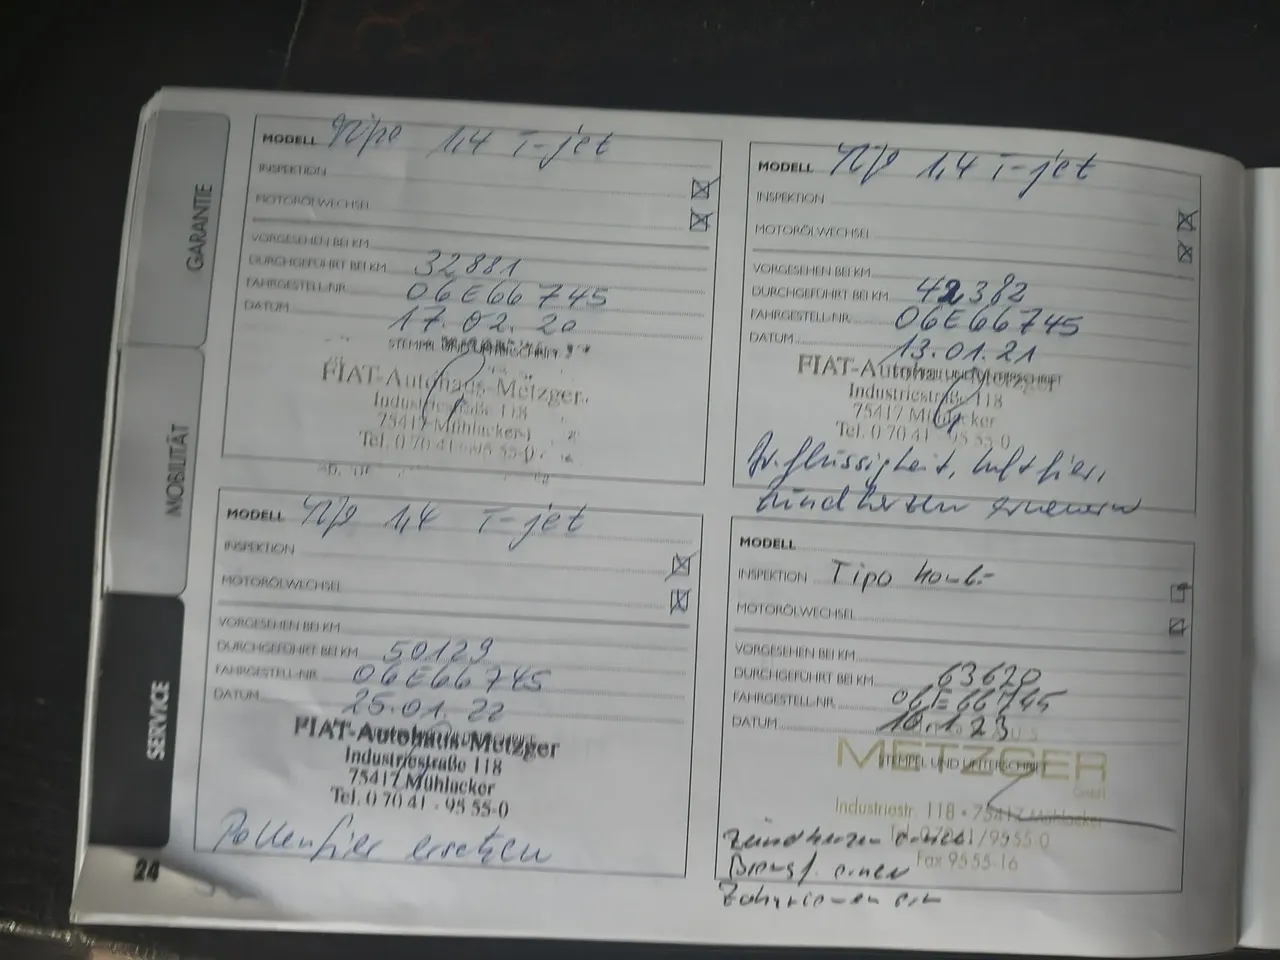 GARANTIE
MOBILITÄT
SERVICE
24
MODELL Tipo 1,4 T-jet
INSPEKTION
MOTORÖLWECHSEL
VORGESEHEN BEI KM
DURCHGEFÜHRT BEI KM 32881
FAHRGESTELL-NR. 06E66745
DATUM 17.02.20
STEMPEL UND UNTERSCHRIFT
FIAT-Autohaus-Metzger
Industriestraße 118
75417 Mühlacker
Tel. 0 70 41 - 95 55-0
MODELL Tipo 1,4 T-jet
INSPEKTION
MOTORÖLWECHSEL
VORGESEHEN BEI KM
DURCHGEFÜHRT BEI KM 42382
FAHRGESTELL-NR. 06E66745
DATUM 13.01.21
STEMPEL UND UNTERSCHRIFT
FIAT-Autohaus-Metzger
Industriestraße 118
75417 Mühlacker
Tel. 0 70 41 - 95 55-0
Br.flüssigkeit, Luftfier,
Zündkerzen erneuern
MODELL Tipo 1,4 T-jet
INSPEKTION
MOTORÖLWECHSEL
VORGESEHEN BEI KM
DURCHGEFÜHRT BEI KM 50129
FAHRGESTELL-NR. 06E66745
DATUM 25.01.22
FIAT-Autohaus-Metzger
Industriestraße 118
75417 Mühlacker
Tel. 0 70 41 - 95 55-0
Pollenfier ersetzen
MODELL
INSPEKTION Tipo Kombi
MOTORÖLWECHSEL
VORGESEHEN BEI KM
DURCHGEFÜHRT BEI KM 63620
FAHRGESTELL-NR. 06E66745
DATUM 10.1.23
METZGER
GmbH
STEMPEL UND UNTERSCHRIFT
Industriestr. 118 • 75417 Mühlacker
Tel. 07041/9555 0
Fax 9555-16
Zündkerzen
Bremsf.
Zahnriemen